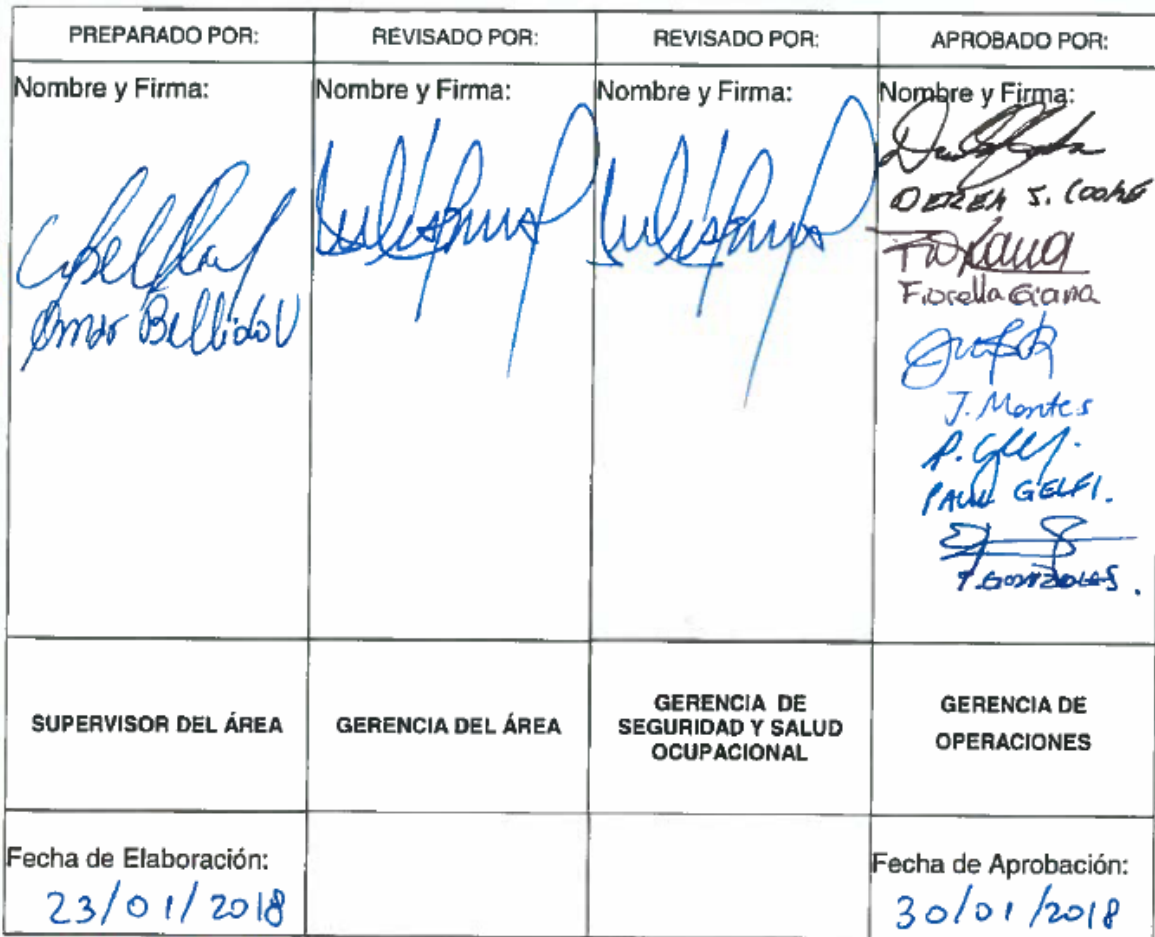 PREPARADO POR:
REVISADO POR:
REVISADO POR:
APROBADO POR:
Nombre y Firma:
Nombre y Firma:
Nombre y Firma:
Nombre y Firma:
Omar Bellido V
DEREK S. COOKE
Fiorella
J. Montes
PAUL GELFI.
SUPERVISOR DEL ÁREA
GERENCIA DEL ÁREA
GERENCIA DE
SEGURIDAD Y SALUD
OCUPACIONAL
GERENCIA DE
OPERACIONES
Fecha de Elaboración:
23/01/2018
Fecha de Aprobación:
30/01/2018